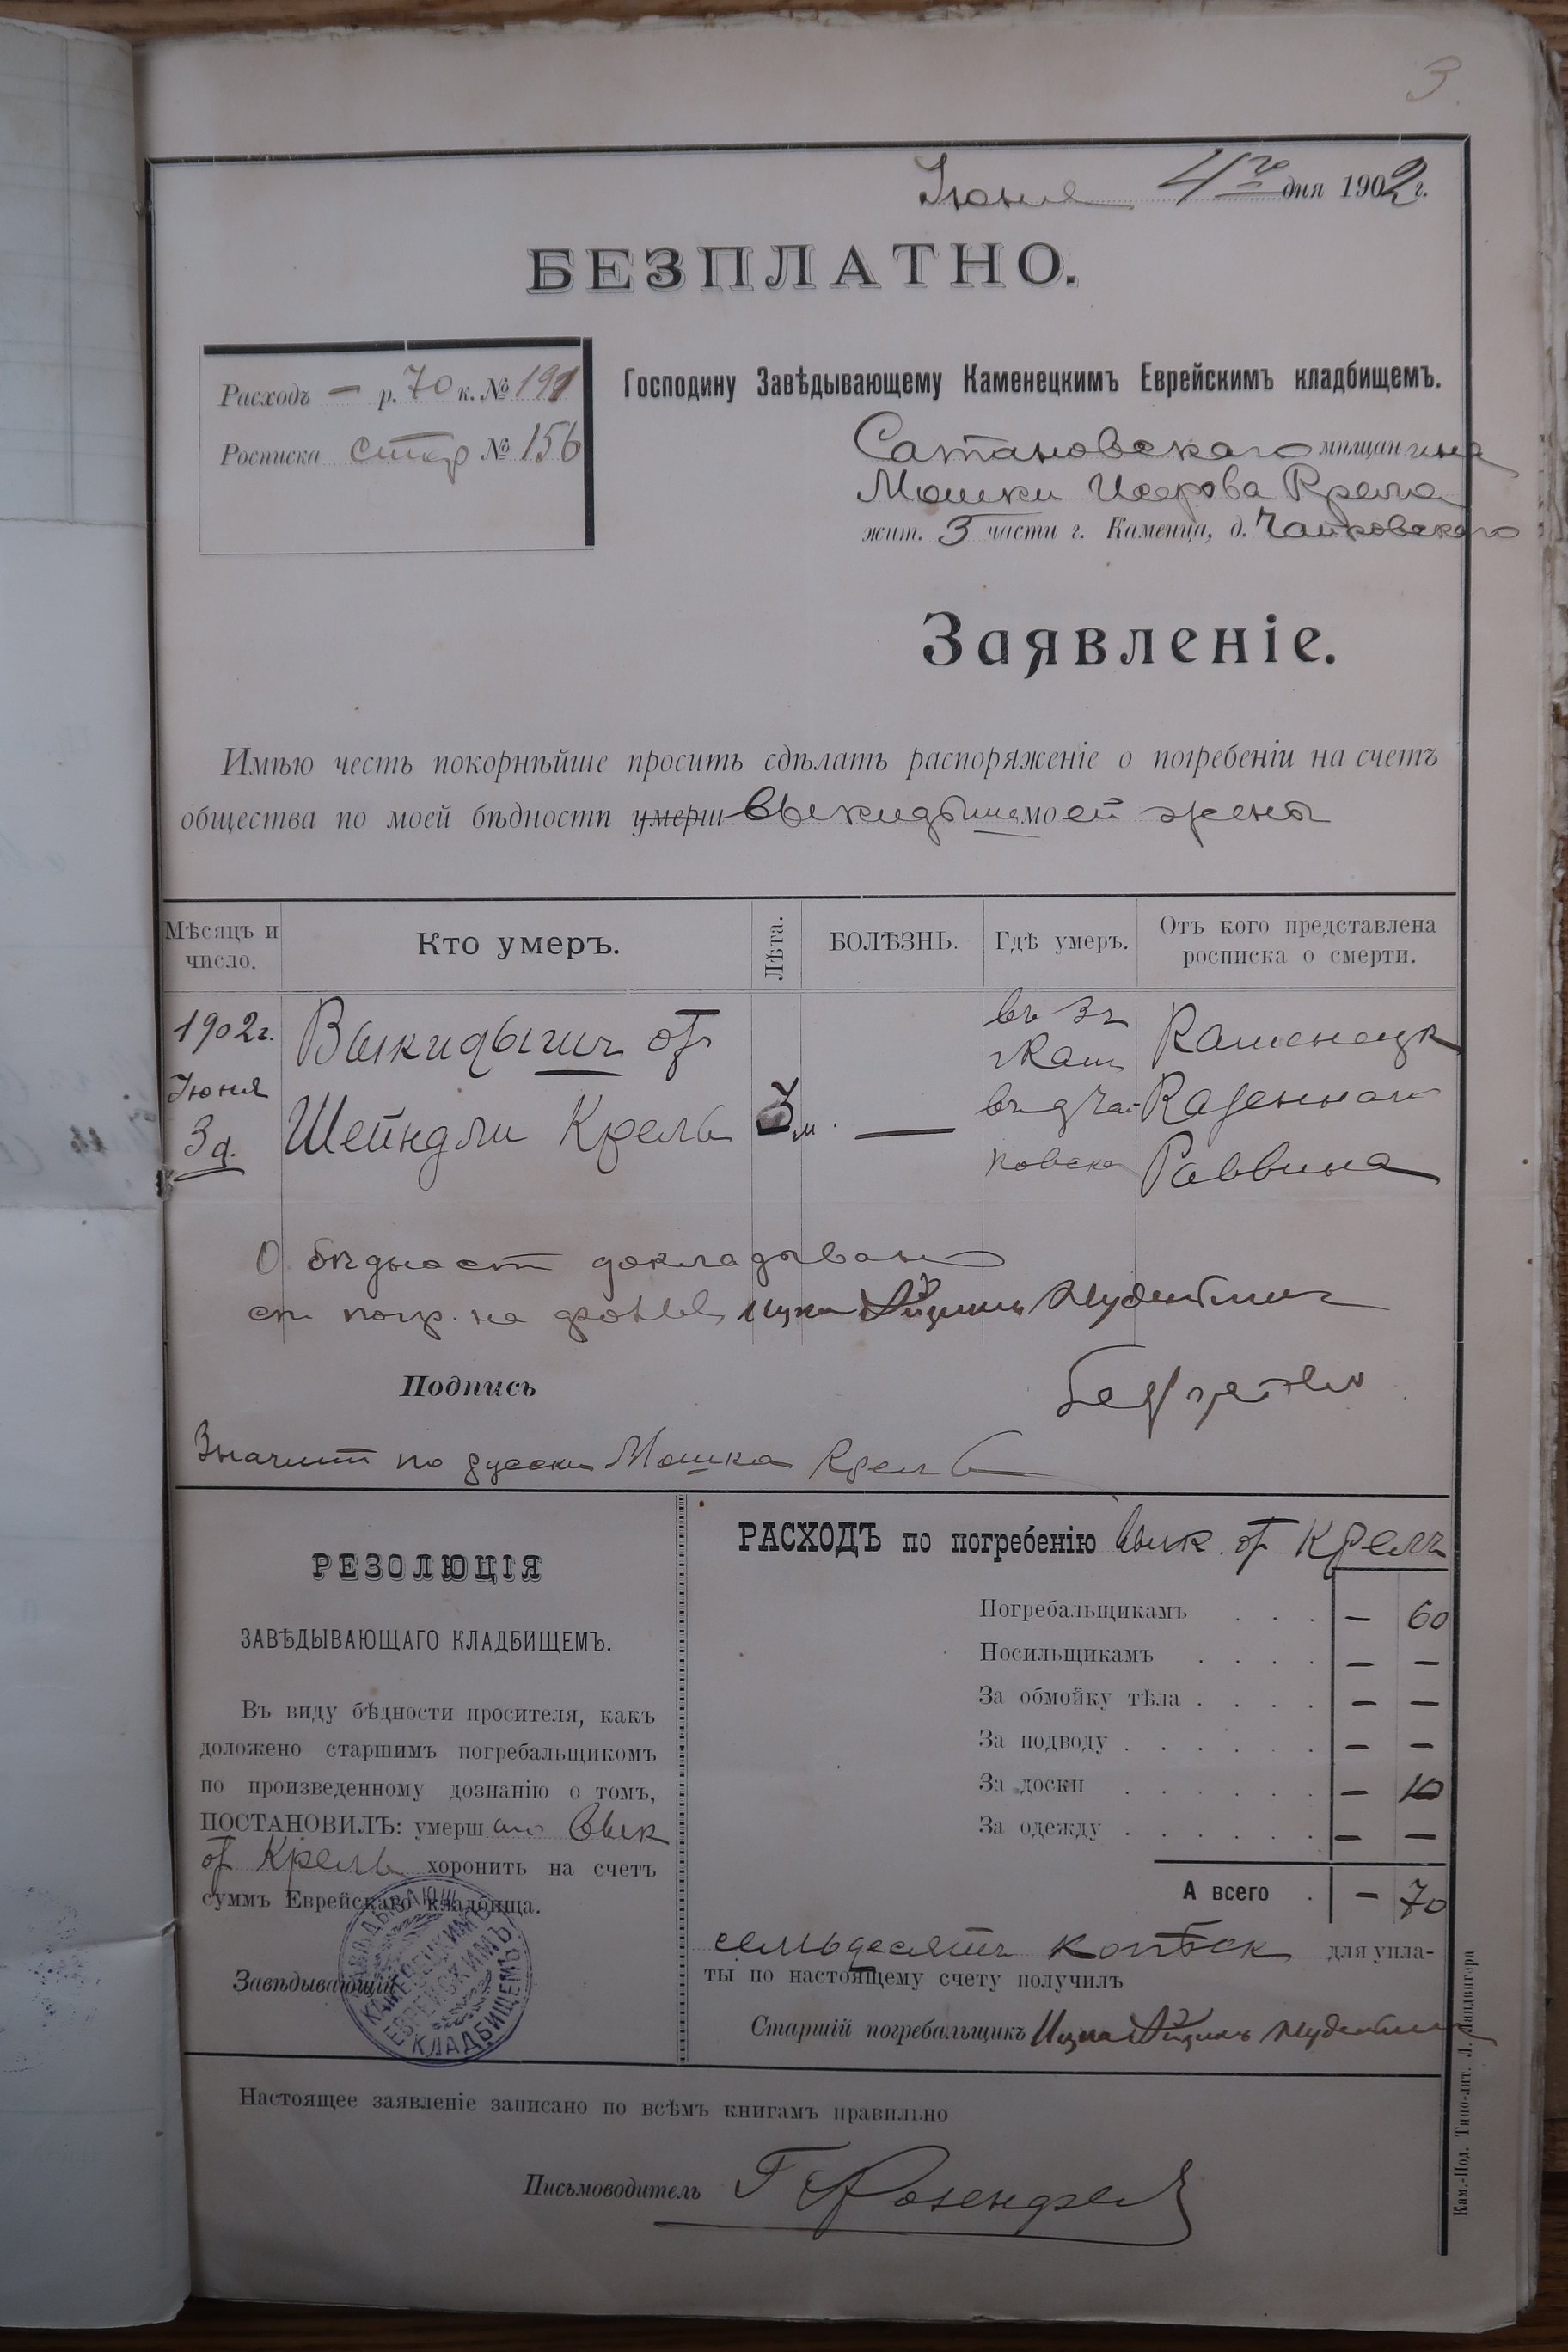 3
Іюня 4го дня 1902 г.
БЕЗПЛАТНО.
Расходъ — р. 70 к. № 191
Росписка стар № 156
Господину Завѣдывающему Каменецкимъ Еврейскимъ кладбищемъ.
Сатановскаго мѣщанина
Мошки Крель
жит. 3 части г. Каменца, д. Чайковскаго
Заявленіе.
Имѣю честь покорнѣйше просить сдѣлать распоряженіе о погребеніи на счетъ
общества по моей бѣдности умерш выкидыша моей жены
Мѣсяцъ и число.
Кто умеръ.
Лѣта.
БОЛѢЗНЬ.
Гдѣ умеръ.
Отъ кого представлена росписка о смерти.
1902 г.
Іюня
3 д.
Выкидышъ от
Шейндли Крель
3 м.
—
въ 3 ч
г Кам
въ д Чай
ковска
Каменецк
Казеннаго
Раввина
О бѣдност докладываю
ст. погр. на
Подпись
Значит по русски Мошка Крель
РЕЗОЛЮЦІЯ
ЗАВѢДЫВАЮЩАГО КЛАДБИЩЕМЪ.
Въ виду бѣдности просителя, какъ
доложено старшимъ погребальщикомъ
по произведенному дознанію о томъ,
ПОСТАНОВИЛЪ: умерш аго вык
от Крель хоронить на счетъ
суммъ Еврейскаго кладбища.
Завѣдывающій
ЗАВѢДЫВАЮЩ. КАМЕНЕЦКИМЪ ЕВРЕЙСКИМЪ КЛАДБИЩЕМЪ
РАСХОДЪ по погребенію вык. от Крель
Погребальщикамъ . . . — 60
Носильщикамъ . . . . — —
За обмойку тѣла . . . . — —
За подводу . . . . . . — —
За доски . . . . . . — 10
За одежду . . . . . . — —
А всего . — 70
семьдесятъ копѣек для упла-
ты по настоящему счету получилъ
Старшій погребальщикъ
Настоящее заявленіе записано по всѣмъ книгамъ правильно
Письмоводитель Г Розенфел
Кам.-Под. Типо-лит. Л. Ландвигера